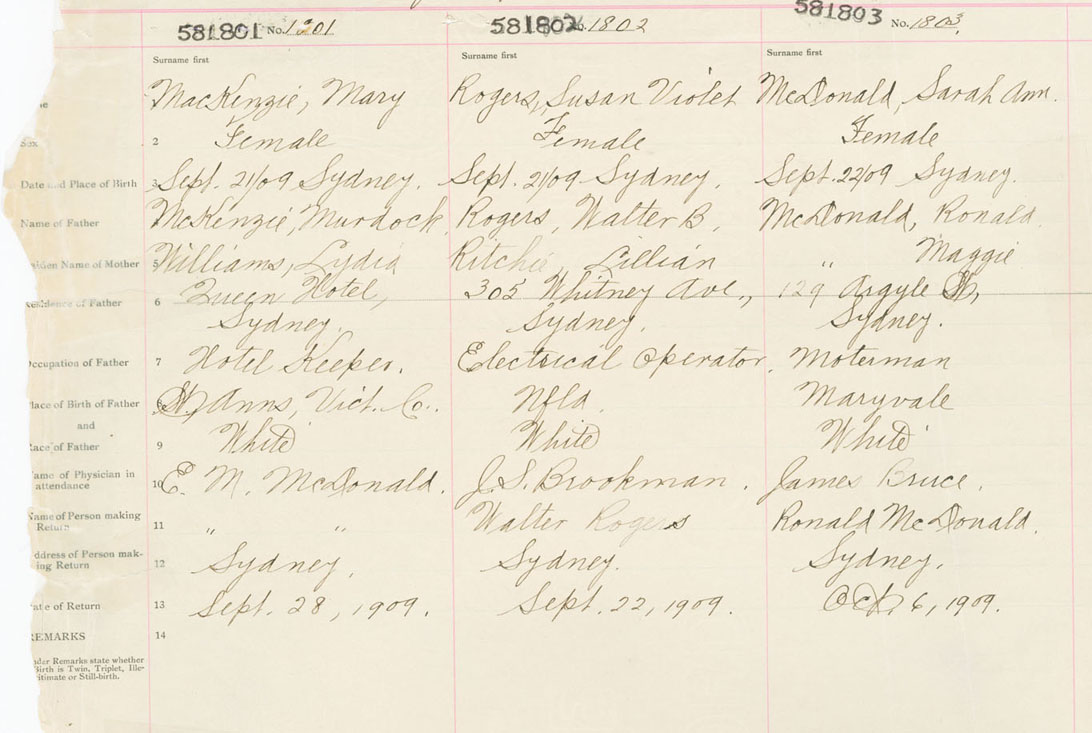 581801 No. 1801 581802 No. 1802 581803 No. 1803.
Surname first Surname first Surname first
MacKenzie, Mary Rogers, Susan Violet McDonald, Sarah Ann.
Sex 2 Female Female Female
Date and Place of Birth 3 Sept. 21/09 Sydney. Sept. 21/09 Sydney. Sept. 22/09 Sydney.
Name of Father McKenzie, Murdock Rogers, Walter B. McDonald, Ronald
aiden Name of Mother 5 Williams, Lydia Ritchie Lillian " Maggie
Residence of Father 6 Queen Hotel, 305 Whitney Ave., 129 Argyle St,
Sydney. Sydney. Sydney.
Occupation of Father 7 Hotel Keeper. Electrical Operator. Moterman
lace of Birth of Father St Anns, Vict. Co. Nfld. Maryvale
and
Race of Father 9 White White White
ame of Physician in
attendance 10 E. M. McDonald. J. S. Brookman. James Bruce.
Name of Person making
Return 11 " " Walter Rogers Ronald McDonald.
ddress of Person mak-
ing Return 12 Sydney. Sydney. Sydney.
ate of Return 13 Sept. 28, 1909. Sept. 22, 1909. Oct. 6, 1909.
REMARKS 14
nder Remarks state whether
Birth is Twin, Triplet, Ille-
gitimate or Still-birth.